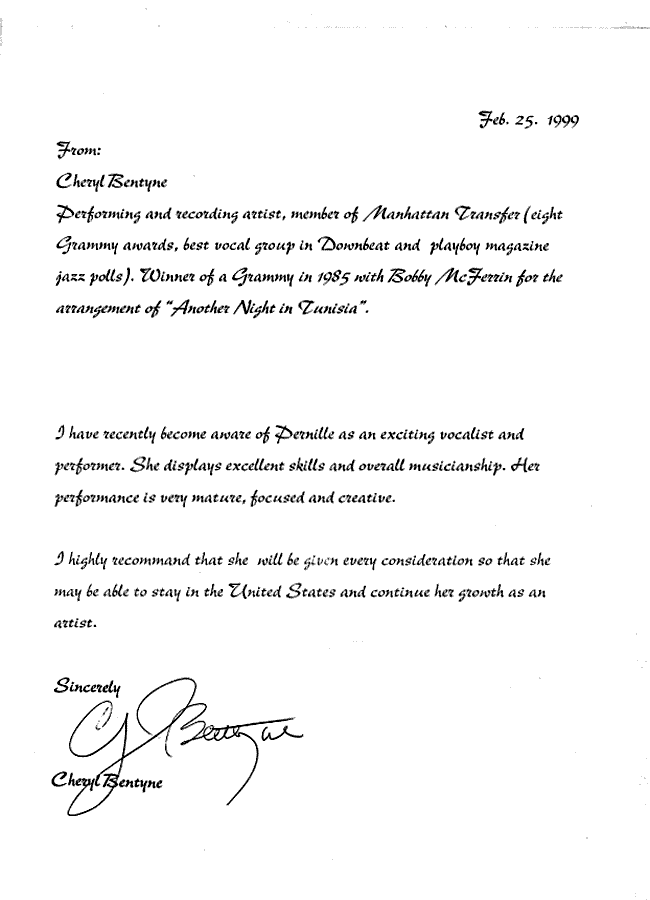 Feb. 25. 1999
From:
Cheryl Bentyne
Performing and recording artist, member of Manhattan Transfer (eight
Grammy awards, best vocal group in Downbeat and playboy magazine
jazz polls). Winner of a Grammy in 1985 with Bobby McFerrin for the
arrangement of "Another Night in Tunisia".
I have recently become aware of Pernille as an exciting vocalist and
performer. She displays excellent skills and overall musicianship. Her
performance is very mature, focused and creative.
I highly recommand that she will be given every consideration so that she
may be able to stay in the United States and continue her growth as an
artist.
Sincerely
C Bentyne
Cheryl Bentyne